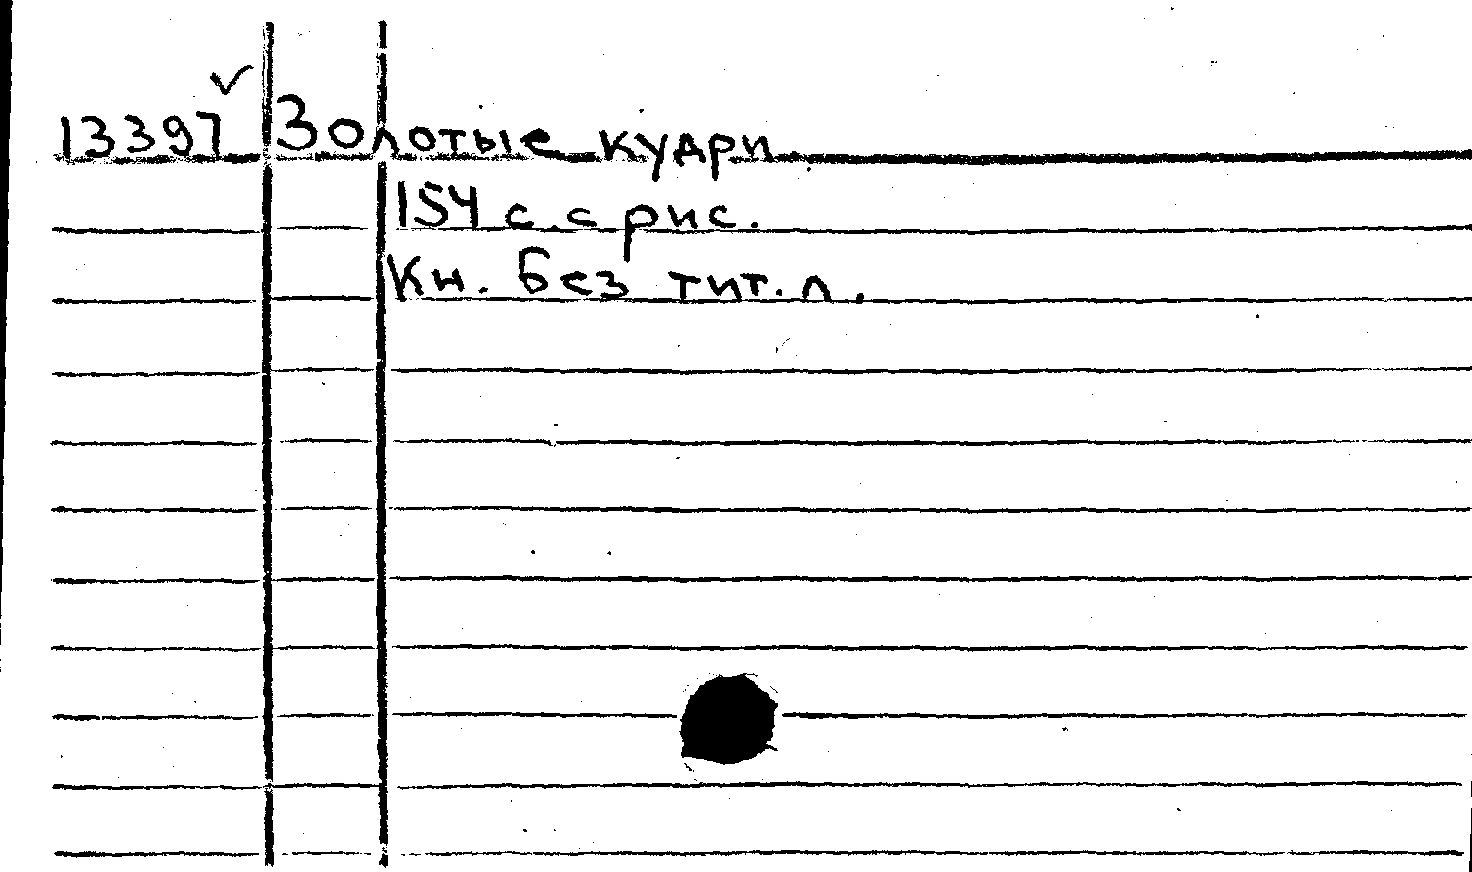 13397 Золотые кудри.
154 с. с рис.
Кн. без тит. л.